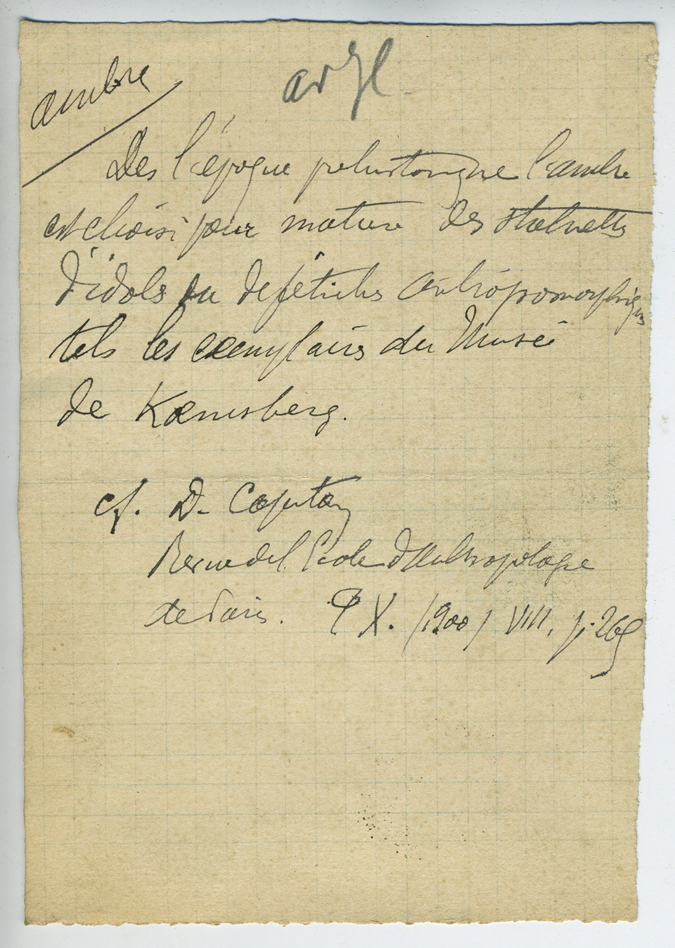 ambre
Dès l'époque préhistorique l'ambre
est choisi pour matière des statuettes
d'idoles ou de fétiches anthropomorphiques
tels les exemplaires du Musée
de Kœnisberg.
cf. D. Capitan
Revue de l'École d'Anthropologie
de Paris. X. (1900) VIII, p. 265